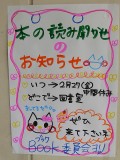 本の読み聞かせ
の
お知らせ
いつ→2月27日(金)
中間休み
どこで→図書室
ぜひ
来て下さい
BOOK委員会